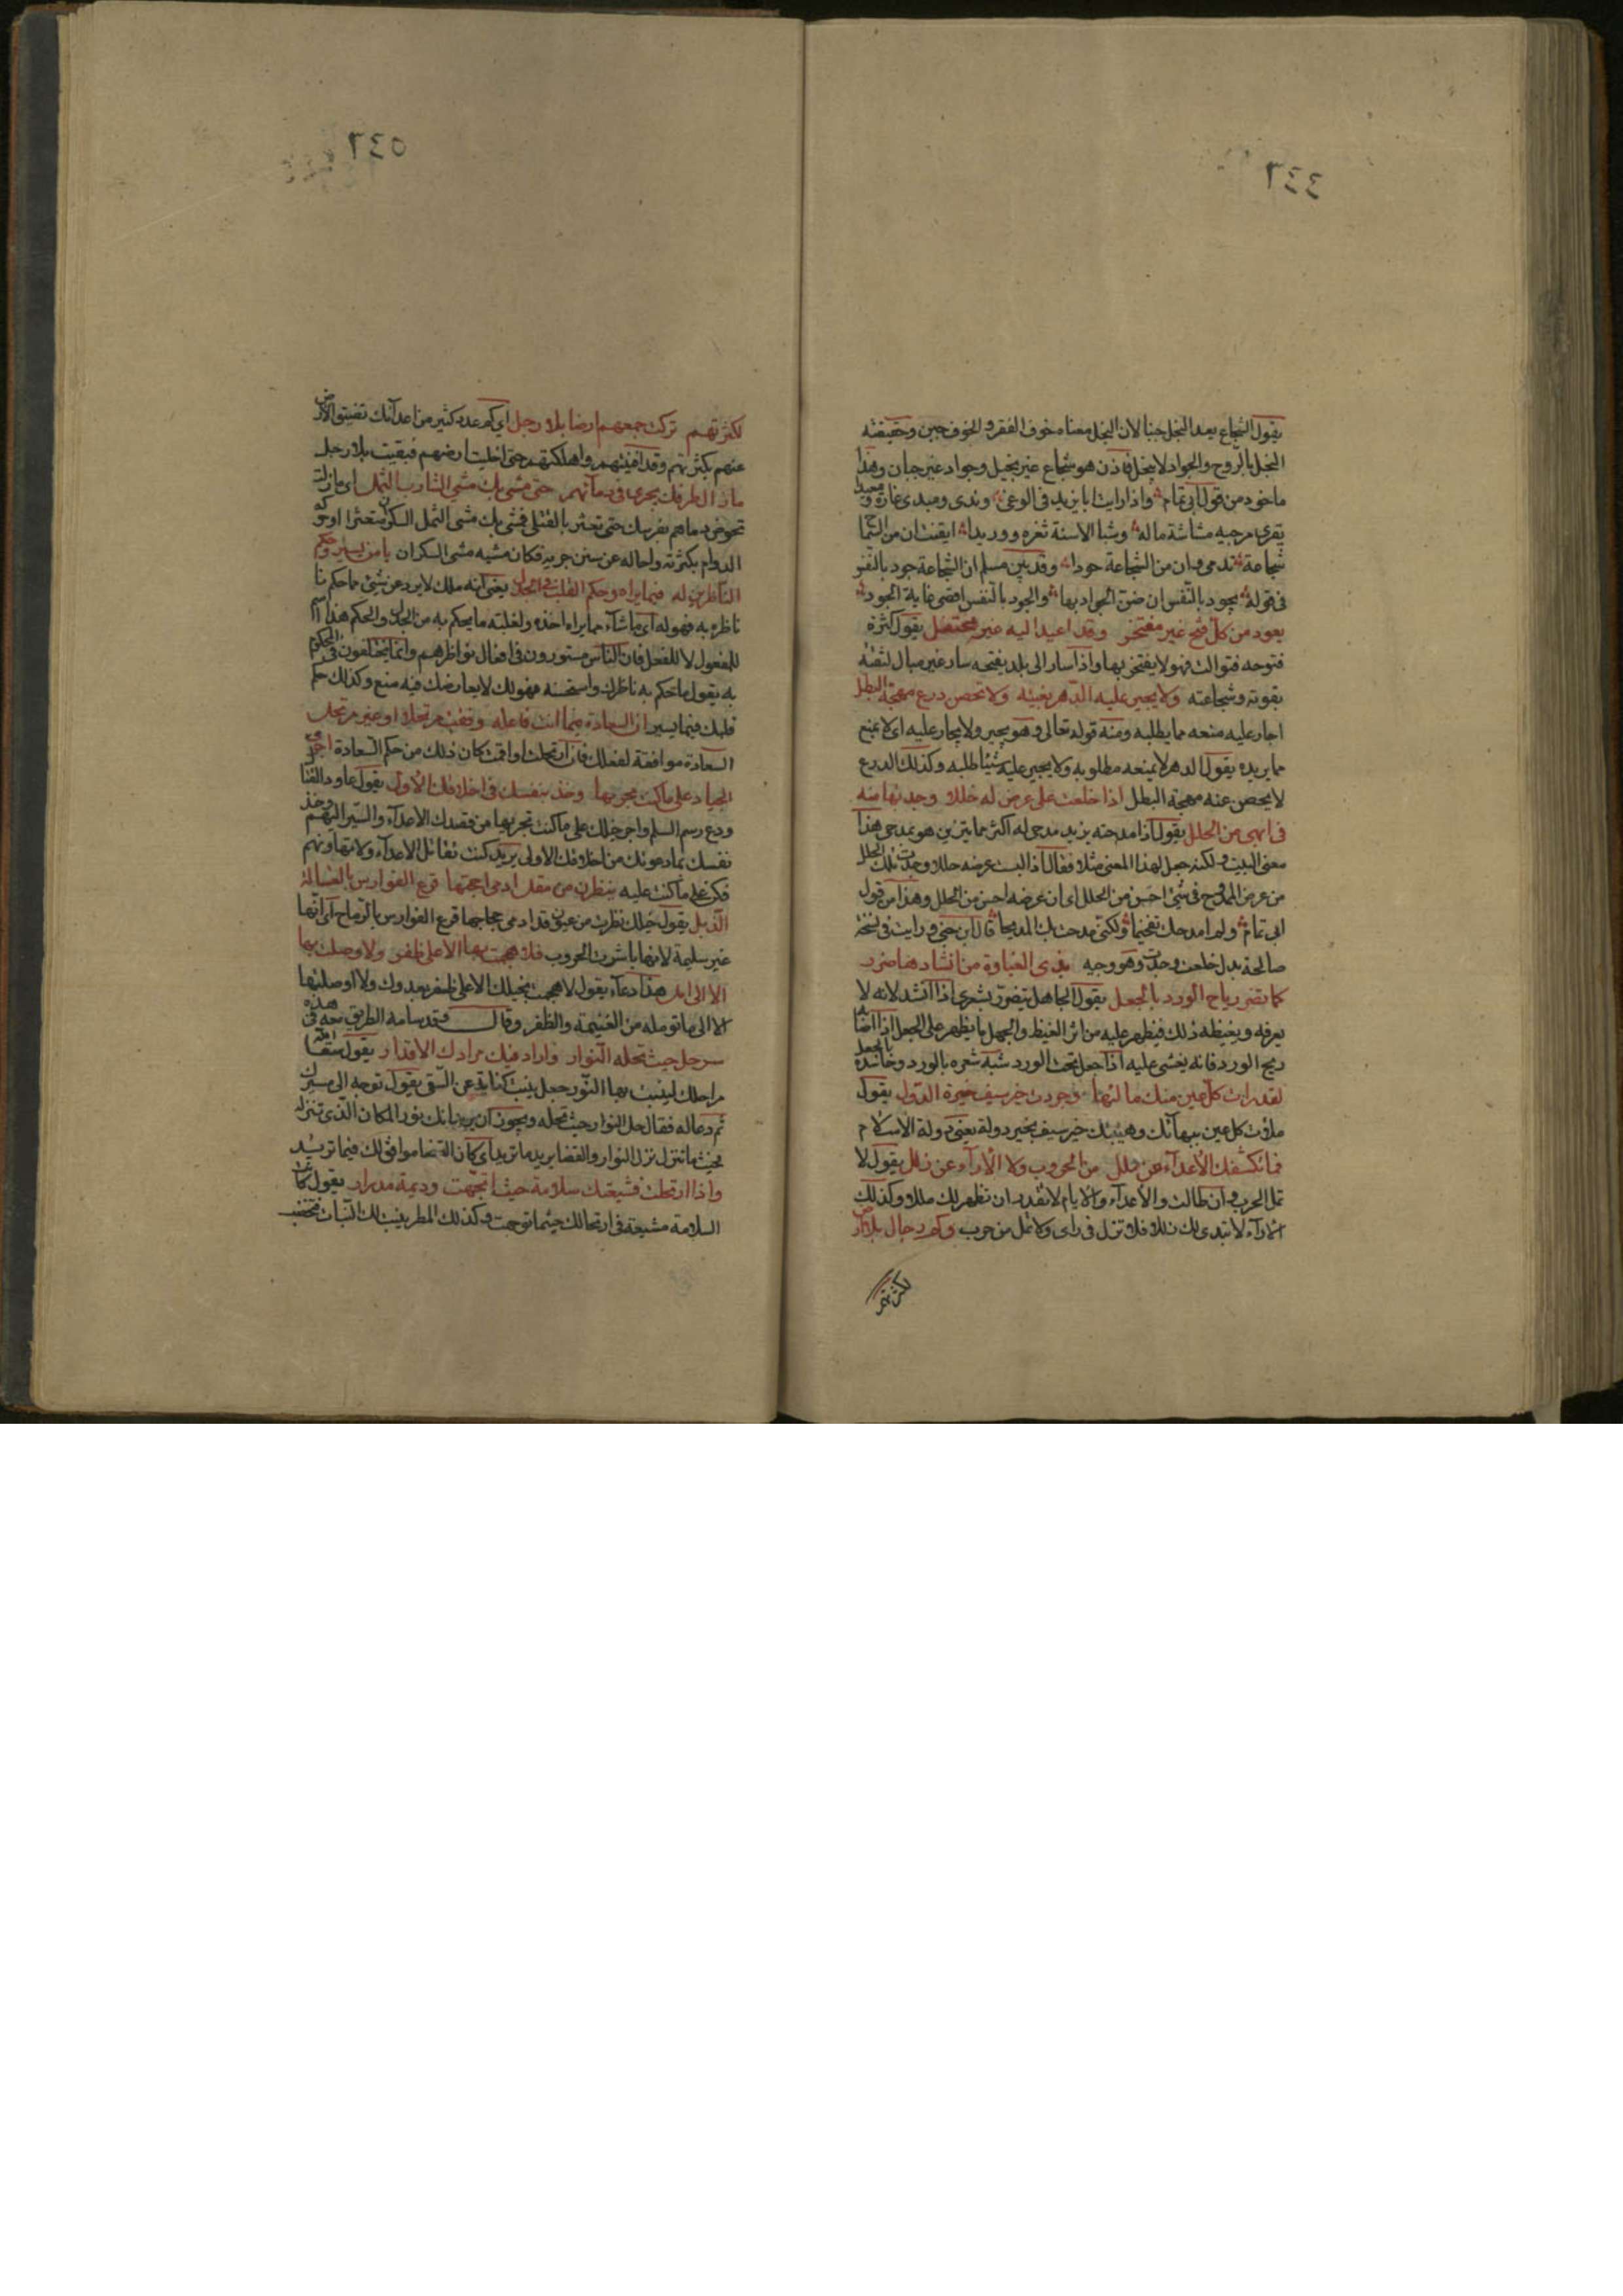 ٤٤٦
يقول الشجاع يعد البخل جبنا لان البخل معناه خوف الفقر والخوف جبن وحقيقته
البخل بالروح والجواد لا يبخل فاذن هو شجاع غير بخيل وجواد غير جبان وهذا
ماخوذ من قول ابي تمام واذا رايت ابا يزيد في الوغى وندى ومبدى غارة ومعيدا
يقرى مرجيه مشاشة ماله وشبا الاسنة ثغرة ووريدا ايقنت ان من السماح
شجاعة تدمى وان من الشجاعة جودا وقد بين مسلم ان الشجاعة جود بالنفس
في قوله يجود بالنفس ان ضن الجواد بها والجود بالنفس اقصى غاية الجود
يعود من كل فتح غير مفتخر وقد اعيد اليه غير محتفل يقول كثرة
فتوحه فتوالت فهو لا يفتخر بها واذا سار الى بلد يفتحه سار غير مبال لثقته
بقوته وشجاعته ولا يجير عليه الدهر بغيته ولا تحصن درع مهجة البطل
اجار عليه منعه مما يطلبه ومنه قوله تعالى وهو يجير ولا يجار عليه اى لا يمنع
مما يريده يقول الدهر لا يمنعه مطلوبه ولا يجير عليه شيئا طلبه وكذلك الدرع
لا يحصن عنه مهجة البطل اذا خلعت على عرض له حللا وجدتها منه
في ابهى من الحلل يقول اذا مدحته يزيد مدحى له اكثر مما يتزين هو بمدحى هذا
معنى البيت ولكنه جعل لهذا المعنى مثلا فقال اذا البست عرضه حللا وجدت تلك الحلل
من عرض الممدوح في شئ احسن من الحلل اى ان عرضه احسن من الحلل وهذا من قول
ابى تمام ولم امدحك تفخيما ولكنى مدحت بك المديحا قال ابن جنى ورايت في نسخة
صالحة بدل خلعت وجدت وهو وجيه بذى الغباوة من انشادها ضرر
كما تضر رياح الورد بالجعل يقول الجاهل يتضرر بشعرى اذا انشد لانه لا
يعرفه ويغيظه ذلك فيظهر عليه من اثر الغيظ والجهل ما يظهر على الجعل اذا اصابه
ريح الورد فانه يغشى عليه اذا جعل تحت الورد شبه شعره بالورد وحاسده بالجعل
لقد رات كل عين منك مالئها وجربت خير سيف خيرة الدول يقول
ملات كل عين ببهائك وهيبتك خير سيف بخير دولة يعنى دولة الاسلام
فما تكشفك الاعداء عن ملل من الحروب ولا الآراء عن زلل يقول لا
تمل الحرب وان طالت والاعداء والايام لا تقدر ان تظهر لك مللا وكذلك
الاراء لا تبدى لك زللا فلا تزل في راى ولا تمل من حرب وكم رجال بلا ارض
لكثرتهم
٥٤٦
لكثرتهم تركت جمعهم ارضا بلا رجل اى كم عدد كثير من اعدائك تضيق الارض
عنهم بكثرتهم وقد افنيتهم واهلكتهم حتى اخليت ارضهم فبقيت بلا رجل
ما زال طرفك يجرى في دمائهم حتى مشى بك مشى الشارب الثمل اى ما زلت
تخوض دماهم بفرسك حتى تعثر بالقتلى فمشى بك مشى الثمل السكران متعثرا
الدوام بكثرته واحاله عن سنن جريه فكان مشيه مشى السكران يا من يسير وحكم
الناظرين له فيما يراه وحكم القلب في الجذل يعنى انه ملك لا يرد عن شئ مما حكم نا
ناظره به فهو له اى ما شاء مما يراه اخذه ولقلبه ما يحكم به من الجذل والحكم هذا اسم
للمفعول لا للفعل فان الناس مستورون في افعال نواظرهم وانما يختلفون في المحكوم
به يقول ما حكم به ناظرك واستحسنه فهو لك لا يعارضك فيه منع وكذلك حكم
قلبك فيما يسير ان السعادة فيما انت فاعله وفقت مرتحلا او غير مرتحل
السعادة موافقة لفعلك فان ارتحلت او اقمت كان ذلك من حكم السعادة اجر
الجياد على ما كنت مجريها وخذ بنفسك في اخلاقك الاول يقول عاود القنا
ودع رسم السلم واجر خيلك على ما كنت تجريها من قصدك الاعداء والسير اليهم وخذ
نفسك بما دعوتك من اخلاقك الاولى يريد كنت تقاتل الاعداء ولا تتهاون بهم
فكن على ما كنت عليه ينظرن من مقل ادمى احجتها قرع الفوارس بالعسالة
الذبل يقول خيلك نظرت من عيون قد ادمى حجاجها قرع الفوارس بالرماح اى انها
غير سليمة لانها باشرت الحروب فلا هجمت بها الا على ظفر ولا وصلت بها
الا الى امل هذا دعاء يقول لا هجمت بخيلك الا على ظفر بعدوك ولا اوصلتها
الا الى ما تومله من الغنيمة والظفر وقال وقد سامه الطريق معه في هذه
سر حل حيث تحله النوار واراد فيك مرادك الاقدار يقول سقى الله
مراحلك لينبت بها النور جعل ينبت كناية عن السقى يقول توجه الى مسيرك
ثم دعا له فقال حل النوار حيث تحله ويجوز ان يريد بانك نور المكان الذى تنزله
بحيث ما تنزل نزل النوار والقضا يريد ما تريد اى كان القضا موافق لك فيما تريد
واذا ارتحلت فشيعتك سلامة حيث اتجهت وديمة مدرار يقول كانت
السلامة مشيعة في ارتحالك حيثما توجهت وكذلك المطر ينبت لك النبات فتخصب